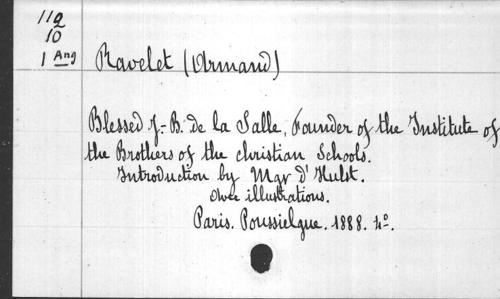 11q
10
1 Ang
Ravelet (Armand)
Blessed J.-B. de la Salle, Founder of the Institute of
the Brothers of the christian Schools.
Introduction by Mgr d'Hulst.
Over illustrations.
Paris. Poussielgue. 1888. 4º.